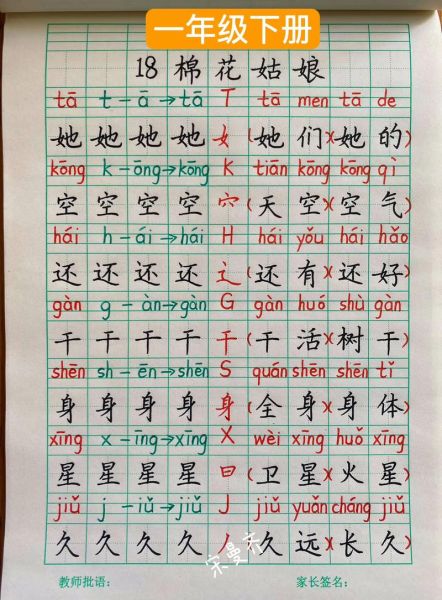 一年级下册
18 棉花姑娘
tā t-ā→tā T tā men tā de
她 她 她 她 女 (她 们)(她 的)
kōng k-ōng→kōng K tiān kōng kōng qì
空 空 空 空 穴 (天 空)(空 气)
hái h-ái→hái H hái yǒu hái hǎo
还 还 还 还 辶 (还 有)(还 好)
gàn g-àn→gàn G gàn huó shù gàn
干 干 干 干 干 (干 活)(树 干)
shēn sh-ēn→shēn S quán shēn shēn tǐ
身 身 身 身 身 (全 身)(身 体)
xīng x-īng→xīng X wèi xīng huǒ xīng
星 星 星 星 日 (卫 星)(火 星)
jiǔ j-iǔ→jiǔ J jiǔ yuǎn cháng jiǔ
久 久 久 久 丿 (久 远)(长 久)
教师批语： 家长签名：